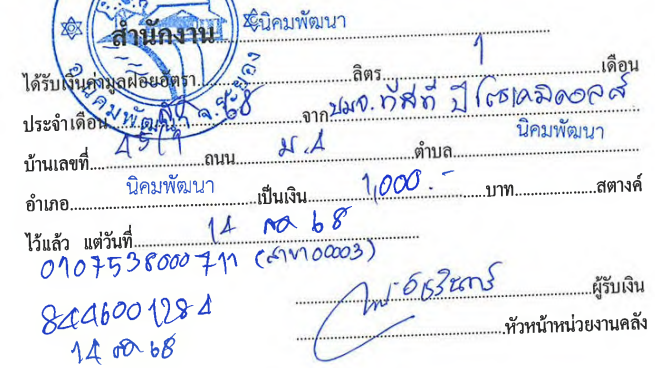 สำนักงาน นิคมพัฒนา
ได้รับเงินค่ามูลฝอยอัตรา ลิตร 1 เดือน
ประจำเดือน 68 จาก บมจ. ทีสที ปิโตรเคมิคอลส์
บ้านเลขที่ 45/1 ถนน ม.4 ตำบล นิคมพัฒนา
อำเภอ นิคมพัฒนา เป็นเงิน 1,000.- บาท สตางค์
ไว้แล้ว แต่วันที่ 14 68
0107538000711 (สาขา 00003)
ผู้รับเงิน
8446001284
หัวหน้าหน่วยงานคลัง
14 68